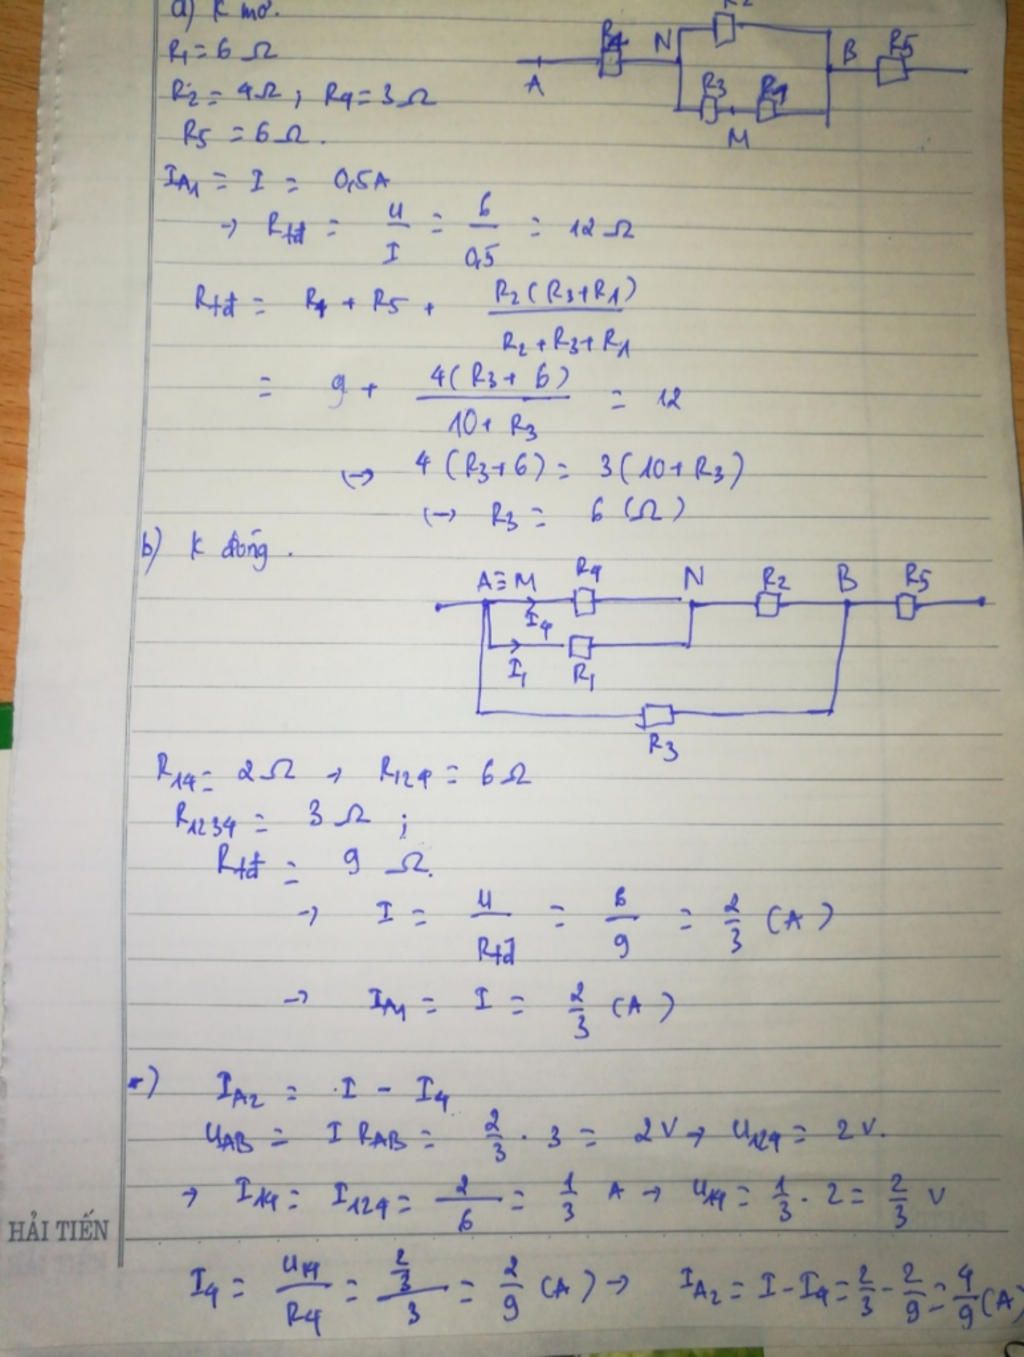 a) K mở.
R1 = 6 Ω
R2 = 4Ω ; R4 = 3Ω
R5 = 6Ω.
A R4 N R2 B R5
R3 M R1
IA1 = I = 0,5A
→ Rtđ = U/I = 6/0,5 = 12 Ω
Rtđ = R4 + R5 + R2(R3+R1)/R2+R3+R1
= 9 + 4(R3+6)/10+R3 = 12
(→ 4(R3+6) = 3(10+R3)
(→ R3 = 6 (Ω)
b) K đóng.
A≡M R4 N R2 B R5
I4
I1 R1
R3
R14 = 2Ω → R124 = 6Ω
R1234 = 3 Ω ;
Rtđ = 9 Ω.
→ I = U/Rtđ = 6/9 = 2/3 (A)
→ IA1 = I = 2/3 (A)
*) IA2 = I - I4
UAB = I RAB = 2/3 . 3 = 2V → U124 = 2V.
→ I14 = I124 = 2/6 = 1/3 A → U14 = 1/3 . 2 = 2/3 V
HẢI TIẾN
I4 = U14/R4 = 2/3/3 = 2/9 (A) → IA2 = I - I4 = 2/3 - 2/9 = 4/9 (A)